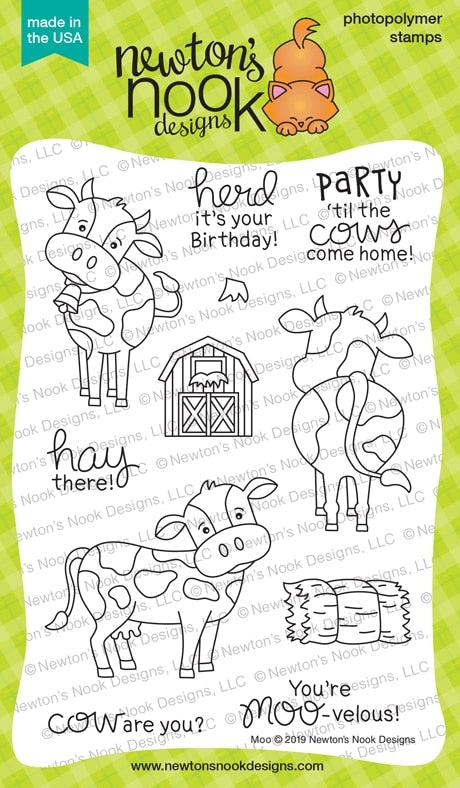 made in
the USA
newton's
nook
designs
photopolymer
stamps
herd
it's your
Birthday!
PARTY
'til the
cows
come home!
hay
there!
cow are you?
You're
moo-velous!
Moo © 2019 Newton's Nook Designs
www.newtonsnookdesigns.com
© Newton's Nook Designs, LLC